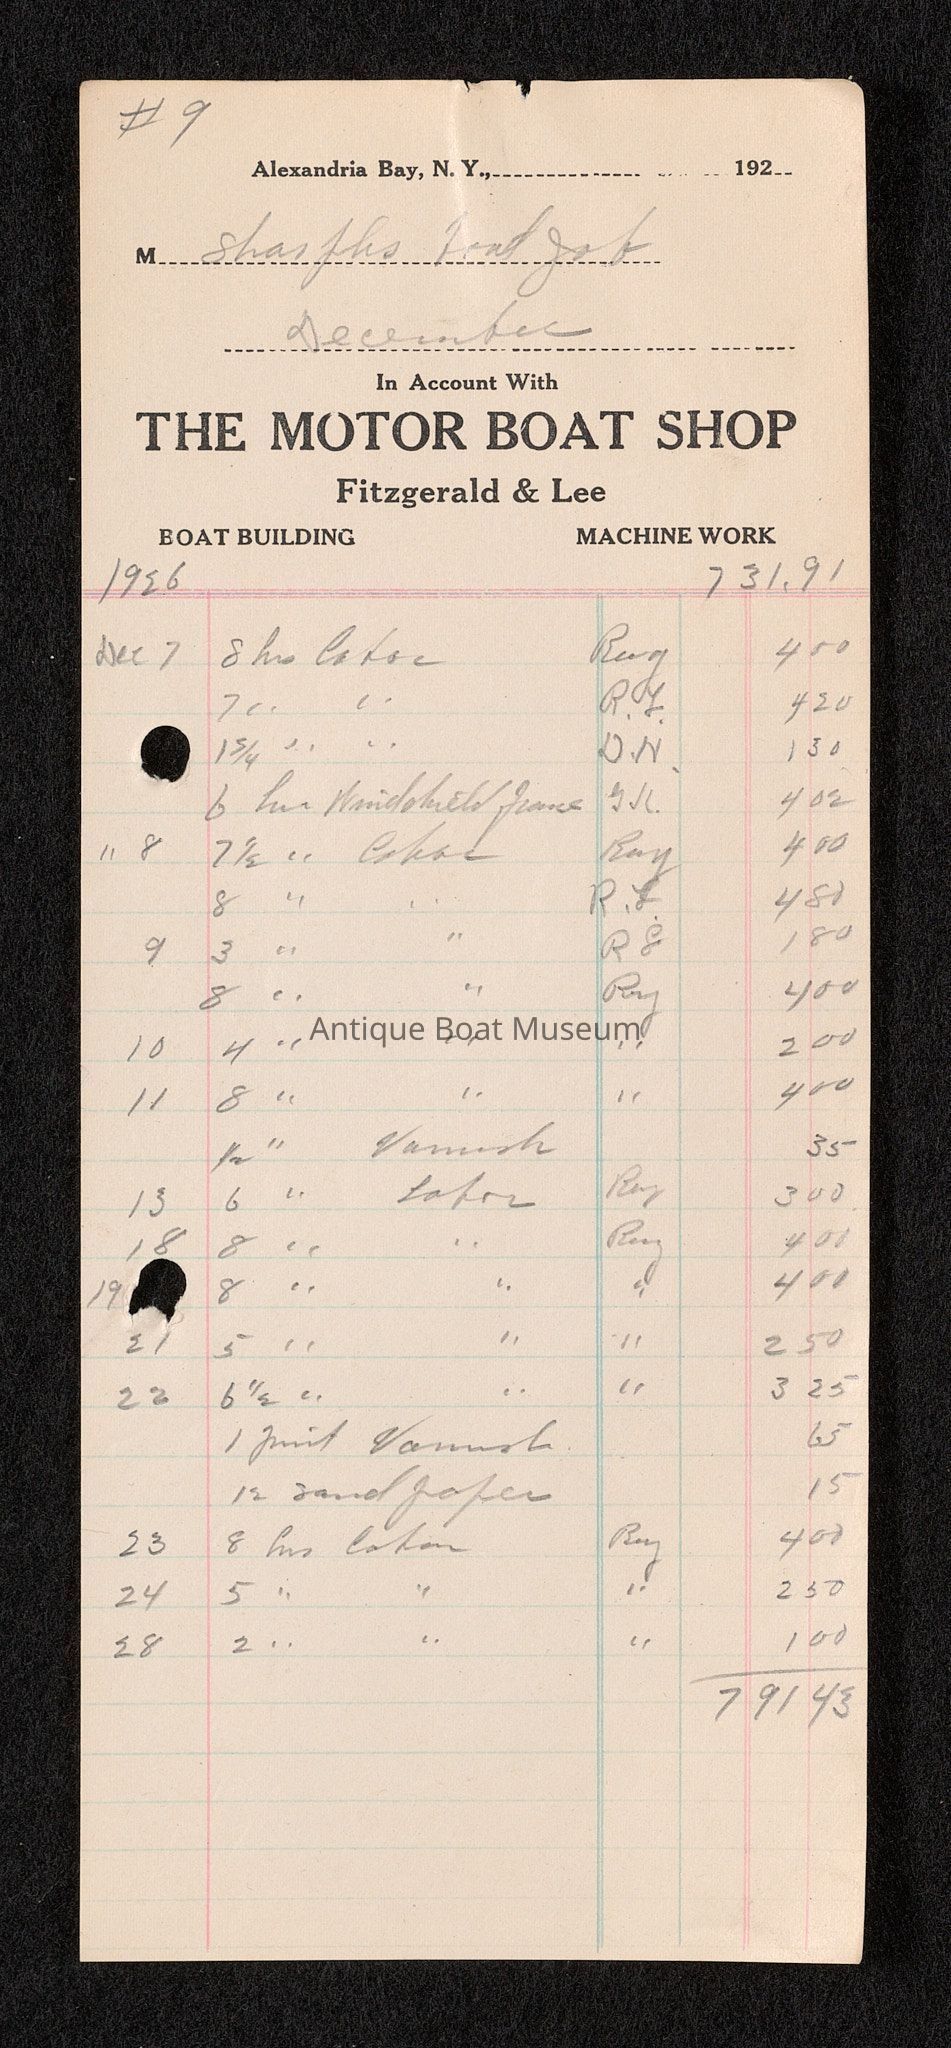 # 9
Alexandria Bay, N. Y., 192
M Sharples Boat Job
December
In Account With
THE MOTOR BOAT SHOP
Fitzgerald & Lee
BOAT BUILDING MACHINE WORK
1926 731.91
Dec 7 8 hrs Labor Ray 4 00
7 " " 4 20
1 3/4 " " D.H. 1 30
6 hrs Windshield frame 4 02
" 8 7 1/2 " Labor Ray 4 00
8 " " 4 80
9 3 " " 1 80
8 " " Ray 4 00
Antique Boat Museum
10 4 " " " 2 00
11 8 " " " 4 00
1/2 " Varnish 35
13 6 " Labor Ray 3 00
18 8 " " Ray 4 00
19 8 " " " 4 00
21 5 " " " 2 50
22 6 1/2 " " " 3 25
1 pint Varnish 65
12 sand paper 15
23 8 hrs Labor Ray 4 00
24 5 " " " 2 50
28 2 " " " 1 00
791 43